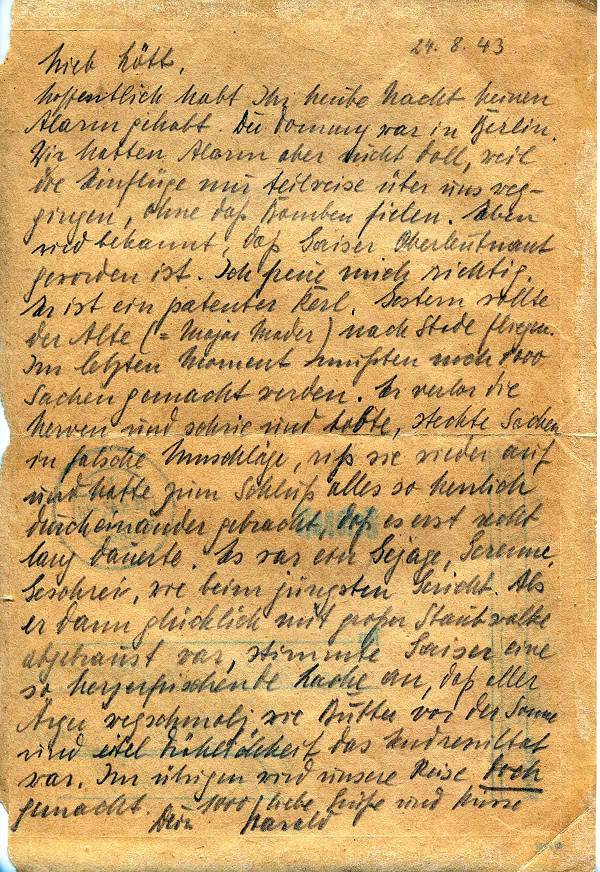 24.8.43
Lieb Lött,
hoffentlich habt Ihr heute Nacht keinen
Alarm gehabt. Der Tommy war in Berlin.
Wir hatten Alarm aber nicht doll, weil
die Einflüge nur teilweise über uns weg-
gingen, ohne daß Bomben fielen. Eben
wird bekannt, daß Gaiser Oberleutnant
geworden ist. Ich freue mich richtig.
Er ist ein patenter Kerl. Gestern wollte
der Alte (= Major Mader) nach Stade fliegen.
Im letzten Moment mußten noch 1000
Sachen gemacht werden. Er verlor die
Nerven und schrie und tobte, steckte Sachen
in falsche Umschläge, riß sie wieder auf
und hatte zum Schluß alles so herrlich
durcheinander gebracht, daß es erst recht
lang dauerte. Es war ein Gejage, Gerenne,
Geschrei, wie beim jüngsten Gericht. Als
er dann glücklich mit großer Staubwolke
abgebraust war, stimmte Gaiser eine
so herzerfrischende Lache an, daß aller
Ärger wegschmolz wie Butter vor der Sonne
und eitel Fröhlichkeit das Endresultat
war. Im übrigen wird unsere Reise doch
gemacht. 1000 liebe Grüße und Küsse
Dein Harald